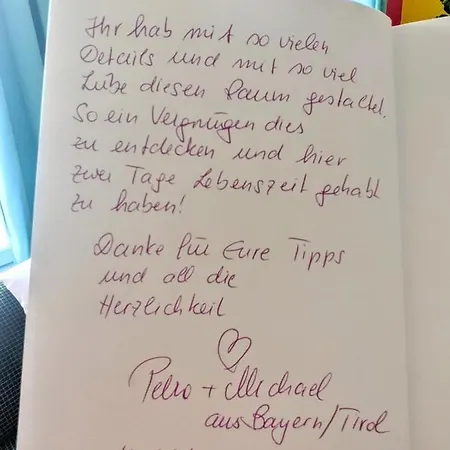 Ihr hab mit so vielen
Details und mit so viel
Liebe diesen Raum gestaltet.
So ein Vergnügen dies
zu entdecken und hier
zwei Tage Lebenszeit gehabt
zu haben!
Danke für Eure Tipps
und all die
Herzlichkeit
+ Michael
aus Bayern/Tirol